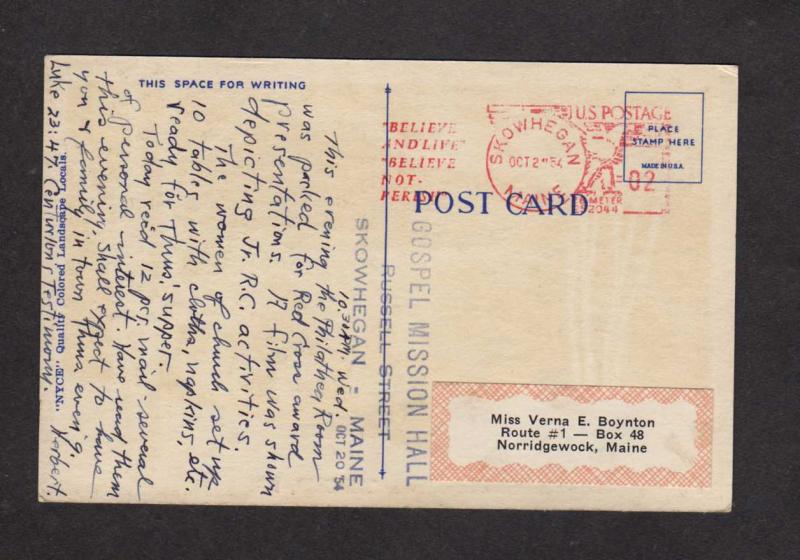 THIS SPACE FOR WRITING
10.30 P.M. Wed.
OCT 20 '54
This evening the Philathea Room
was packed for Red Cross award
presentations. A film was shown
depicting Jr. R.C. activities.
The women of church set up
10 tables with cloths, napkins, etc.
ready for Thurs. supper.
Today recd 12 pcs mail - several
of personal interest. Have read them
this evening. Shall expect to have
you & family in town Thurs eveng.
Luke 23:47 Centurion's Testimony. Norbert.
"NYCE" Quality Colored Landscape Locals.
GOSPEL MISSION HALL
RUSSELL STREET
SKOWHEGAN - MAINE
"BELIEVE
AND LIVE"
"BELIEVE
NOT-
PERISH"
SKOWHEGAN
OCT 2 '54
MAINE
U.S. POSTAGE
02
METER
2044
PLACE
STAMP HERE
MADE IN U.S.A.
POST CARD
Miss Verna E. Boynton
Route #1 — Box 48
Norridgewock, Maine